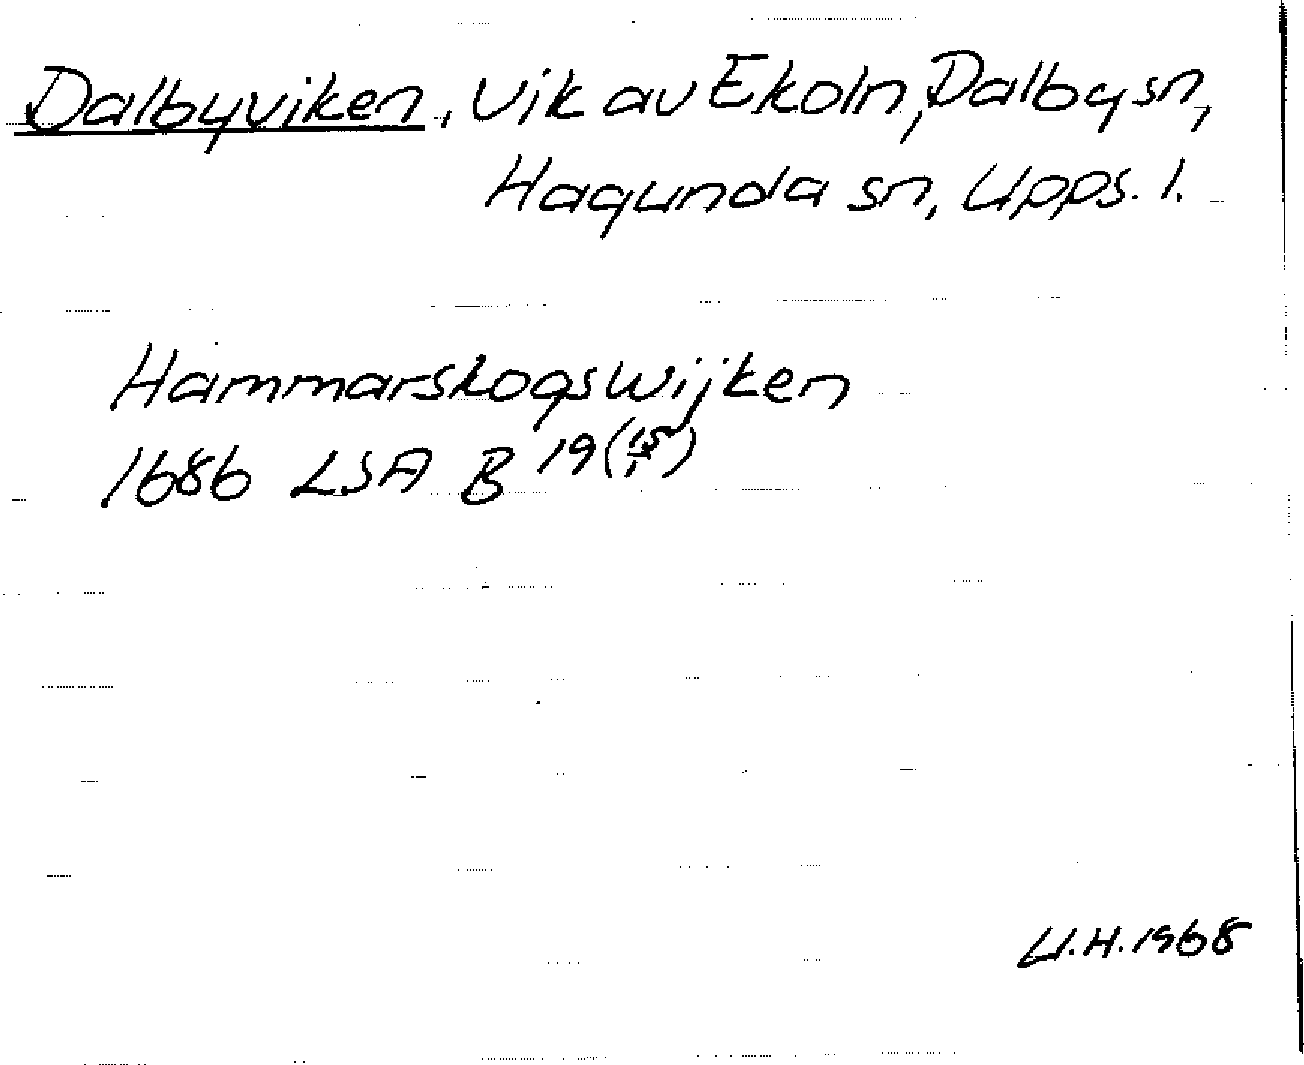 Dalbyviken, vik av Ekoln, Dalby sn,
Hagunda sn, Upps. l.
Hammarskogswijken
1686 LSA B 19 (15/1)
U.H. 1968